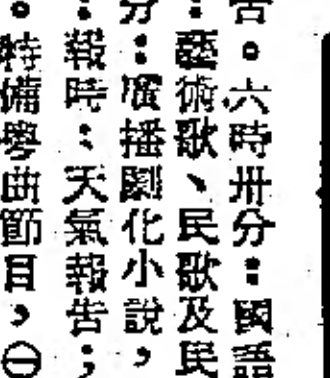 告。六時卅分：國語
：藝術歌、民歌及民
分：廣播劇化小說，
：報時：天氣報告；
。特備粵曲節目，㊀